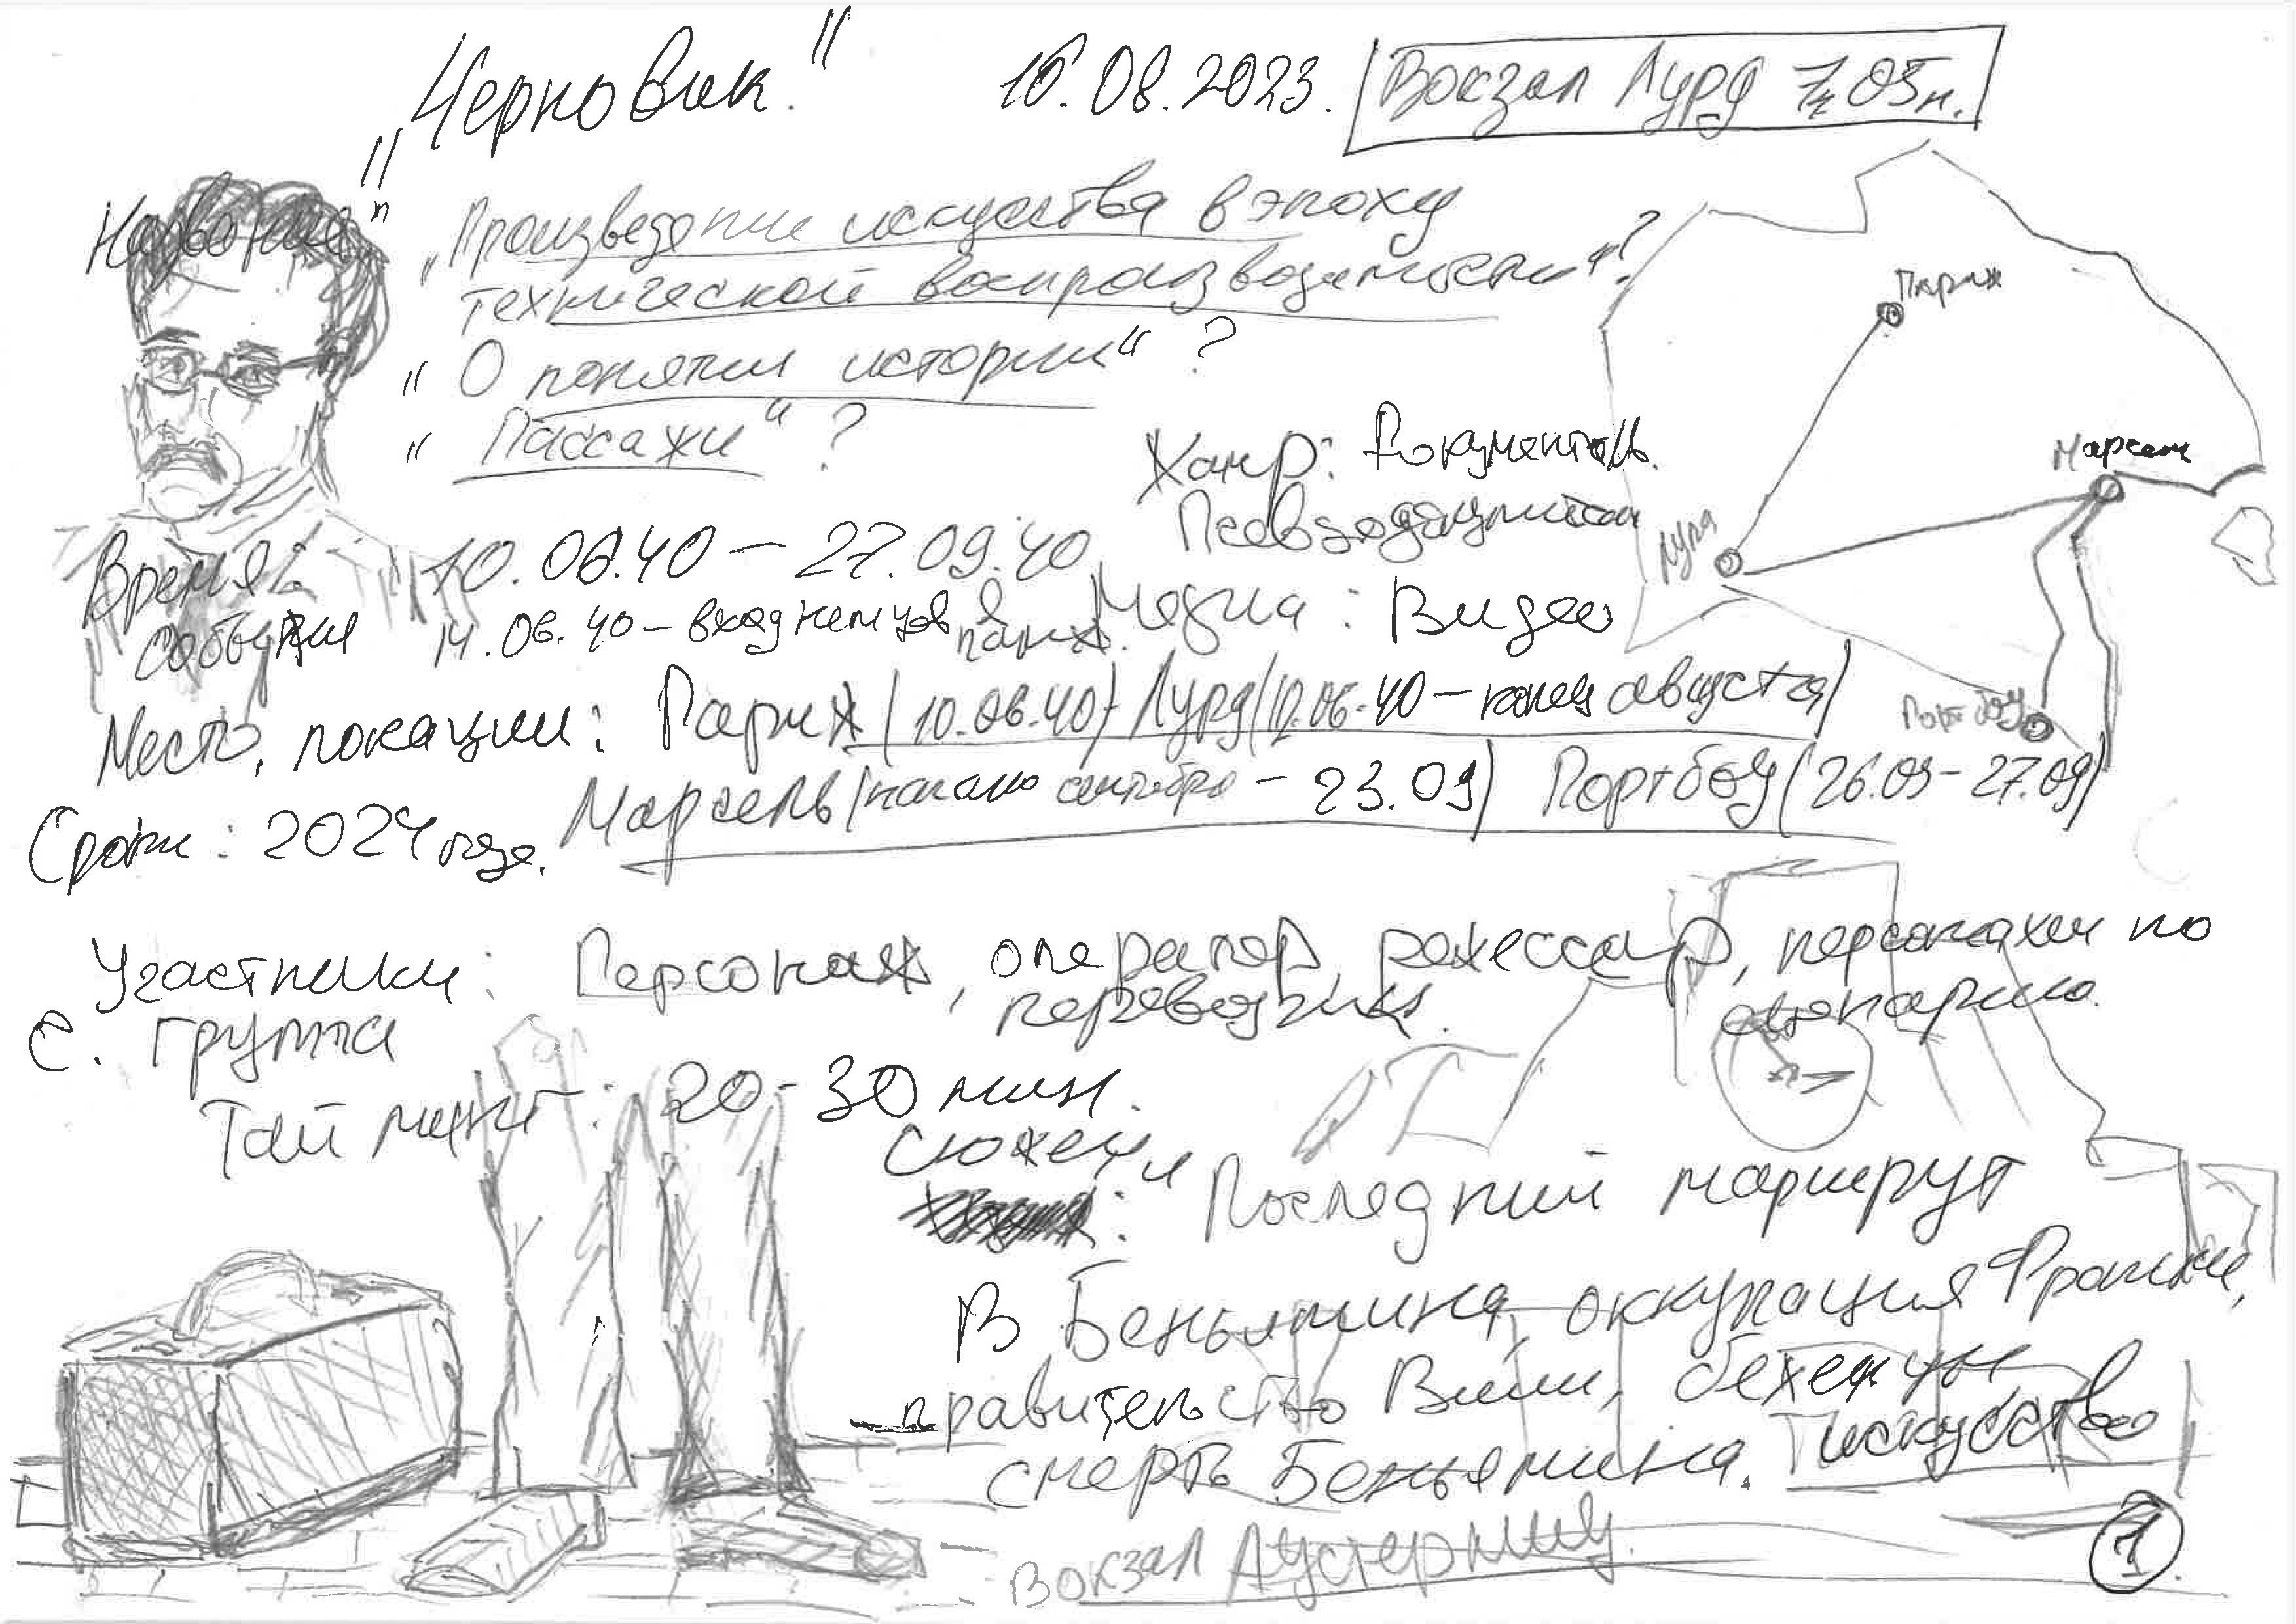 „Черновик." 16.08.2023. Вокзал Лурд 7ч 05м.
Название „Произведение искусства в эпоху
технической воспроизводимости"?
Париж
"О понятии истории"?
"Пассажи"?
Жанр: Документаль.
Марсель
Псевдодокументал
Лурд
Время: 10.06.40 – 27.09.40
события 14.06.40 – вход немцев в париж.
Медиа: Видео
Портбоу
Место, локации: Париж (10.06.40) Лурд (12.06.40 – конец августа)
Марсель (начало сентября – 23.09) Портбоу (26.09 – 27.09)
Сроки: 2024 года.
Участники: Персонаж, оператор, режессар, персонажи по
с. группа переводчик. сценарию.
Тайминг: 20-30 мин.
Сюжет
: "Последний маршрут
В Беньямина, оккупация Франции,
правительство Виши, беженцы
смерть Беньямина. искусство
Вокзал Аустерлиц.
1.